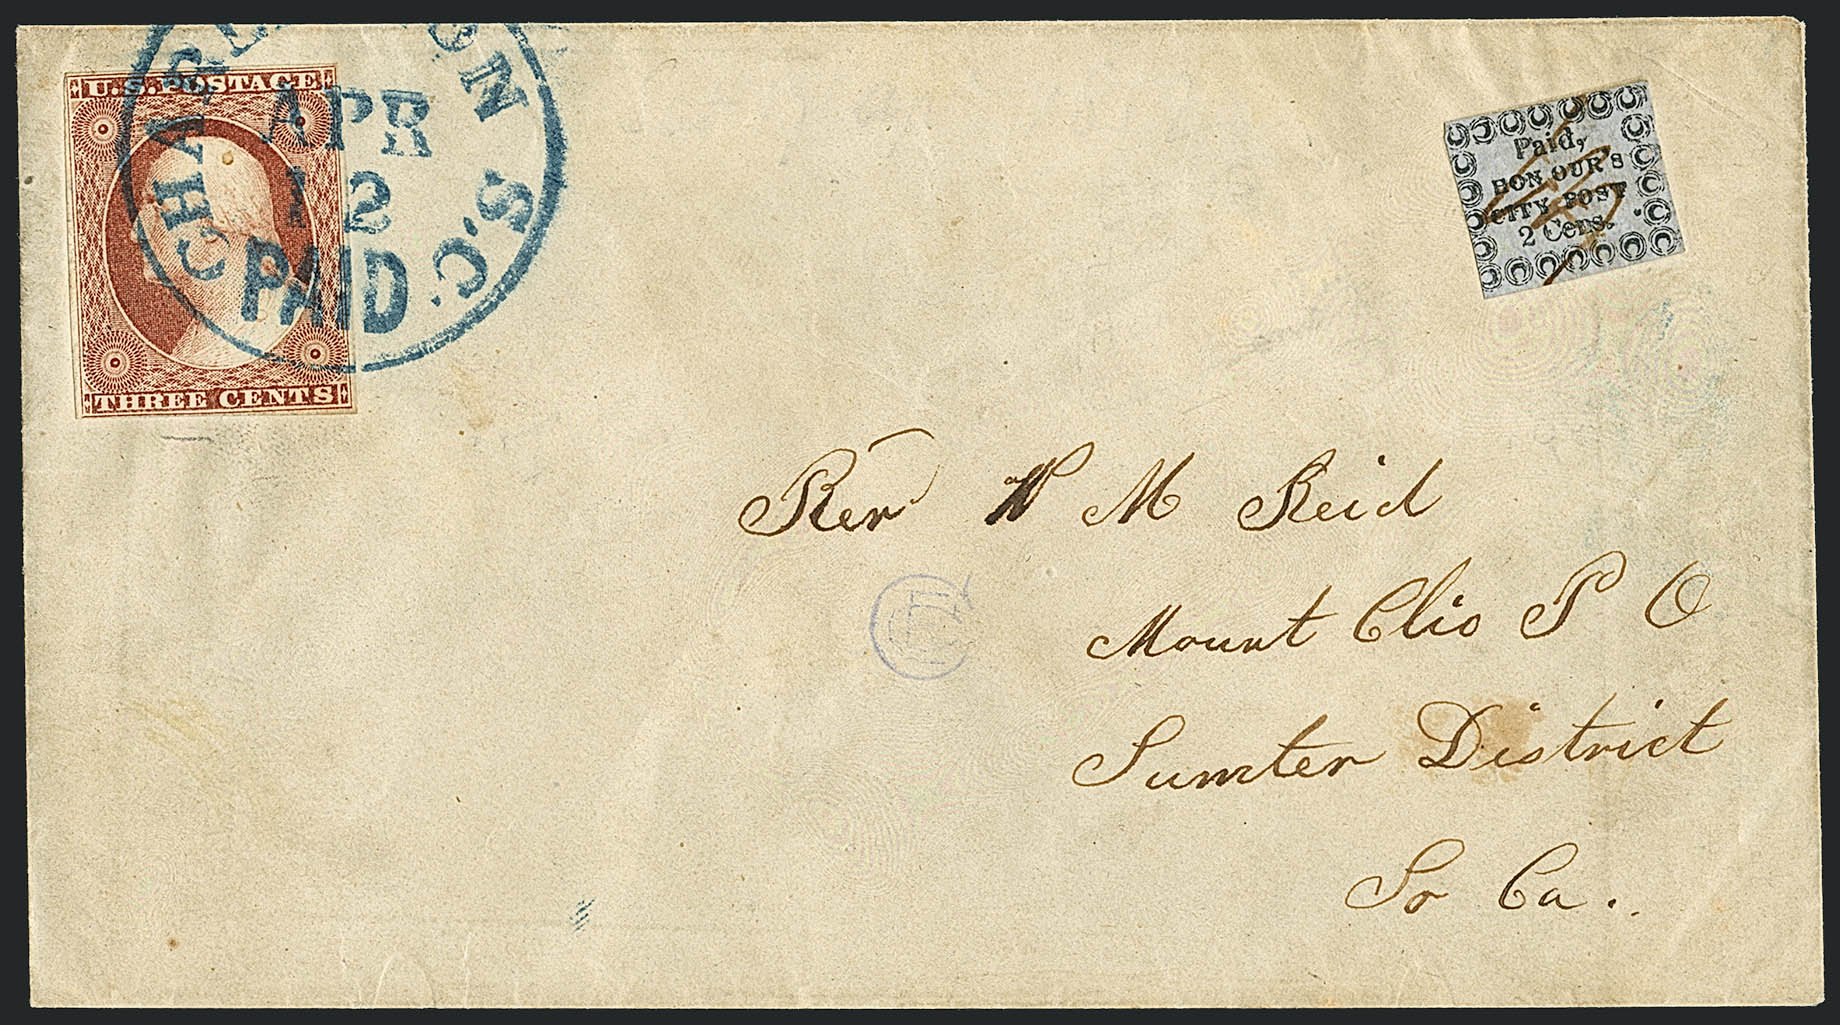 U.S. POSTAGE
THREE CENTS
CHARLESTON S.C.
APR
12
PAID
Paid,
HONOUR'S
CITY POST
2 Cens.
Rev M Reid
Mount Clio P O
Sumter District
So Ca.